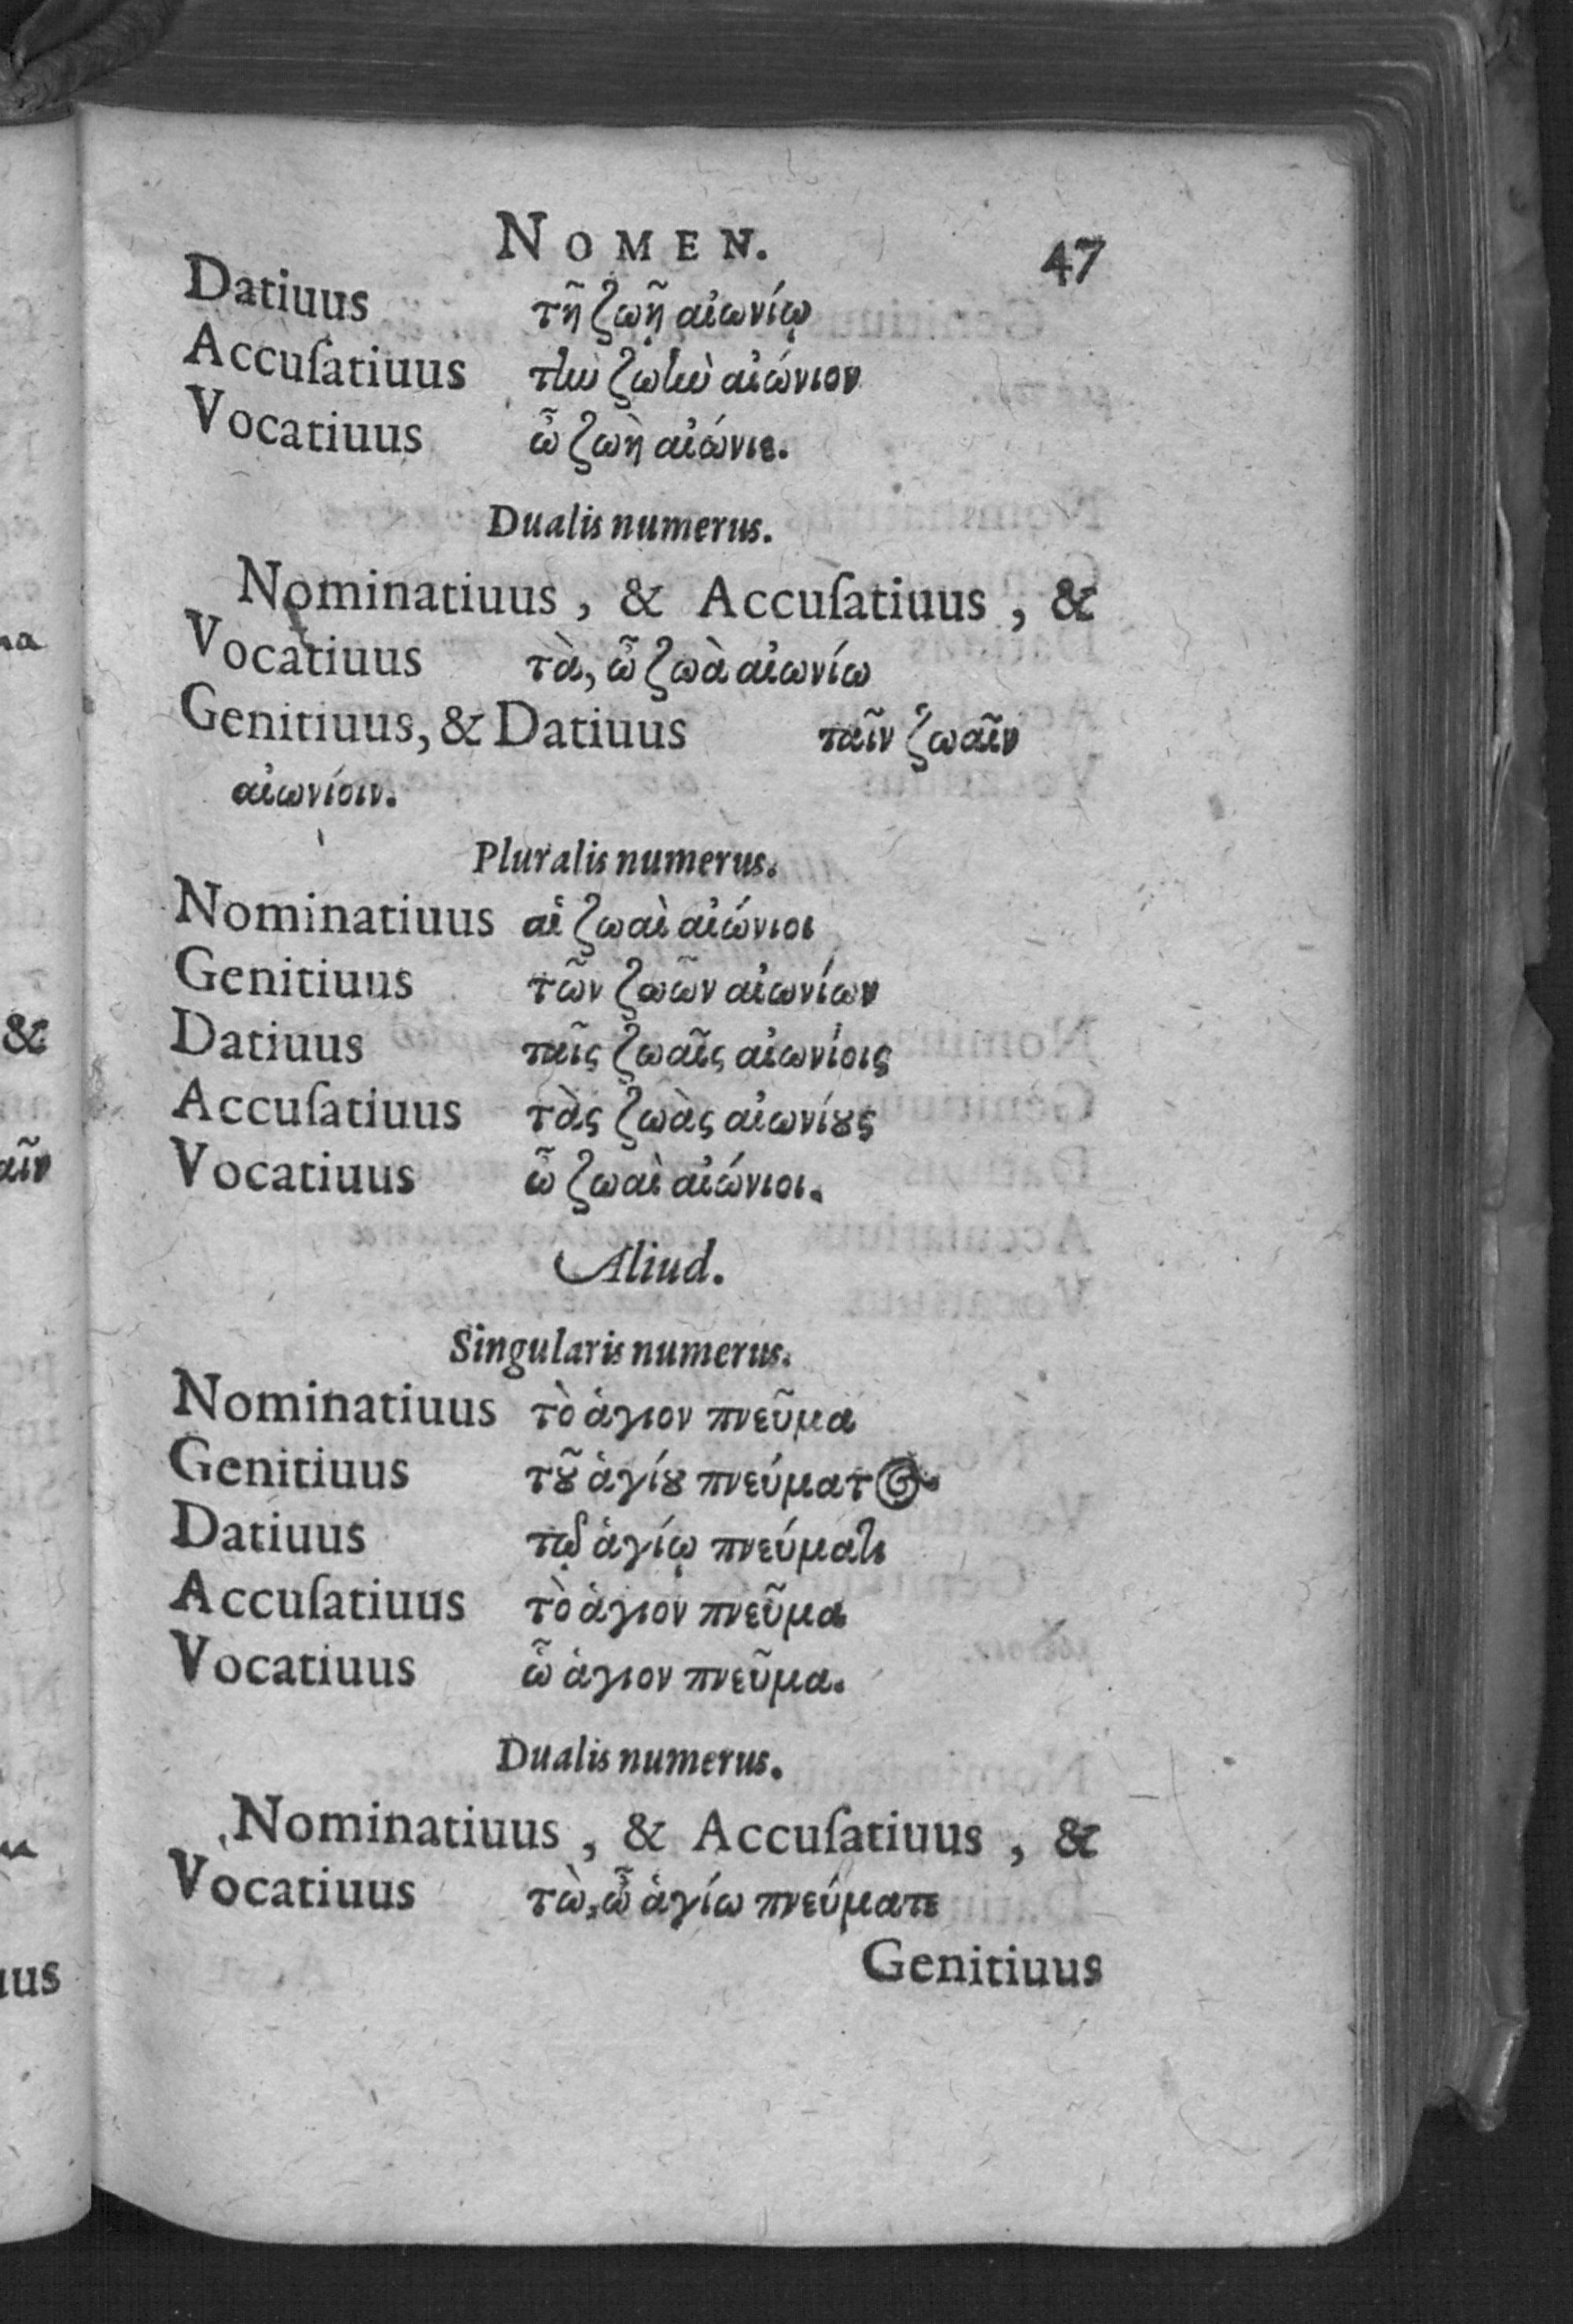 NOMEN. 47
Datiuus τῇ ζωῇ αἰωνίῳ
Accuſatiuus τὴν ζωὴν αἰώνιον
Vocatiuus ὦ ζωὴ αἰώνιε.
Dualis numerus.
Nominatiuus, & Accuſatiuus, &
Vocatiuus τὰ, ὦ ζωὰ αἰωνίω
Genitiuus, & Datiuus ταῖν ζωαῖν
αἰωνίοιν.
Pluralis numerus.
Nominatiuus αἱ ζωαὶ αἰώνιοι
Genitiuus τῶν ζωῶν αἰωνίων
Datiuus ταῖς ζωαῖς αἰωνίοις
Accuſatiuus τὰς ζωὰς αἰωνίȣς
Vocatiuus ὦ ζωαὶ αἰώνιοι.
Aliud.
Singularis numerus.
Nominatiuus τὸ ἁγιον πνεῦμα
Genitiuus τȣ͂ ἁγίȣ πνεύματος
Datiuus τῷ ἁγίῳ πνεύματι
Accuſatiuus τὸ ἁγιον πνεῦμα
Vocatiuus ὦ ἁγιον πνεῦμα.
Dualis numerus.
Nominatiuus, & Accuſatiuus, &
Vocatiuus τὼ, ὦ ἁγίω πνεύματε
Genitiuus